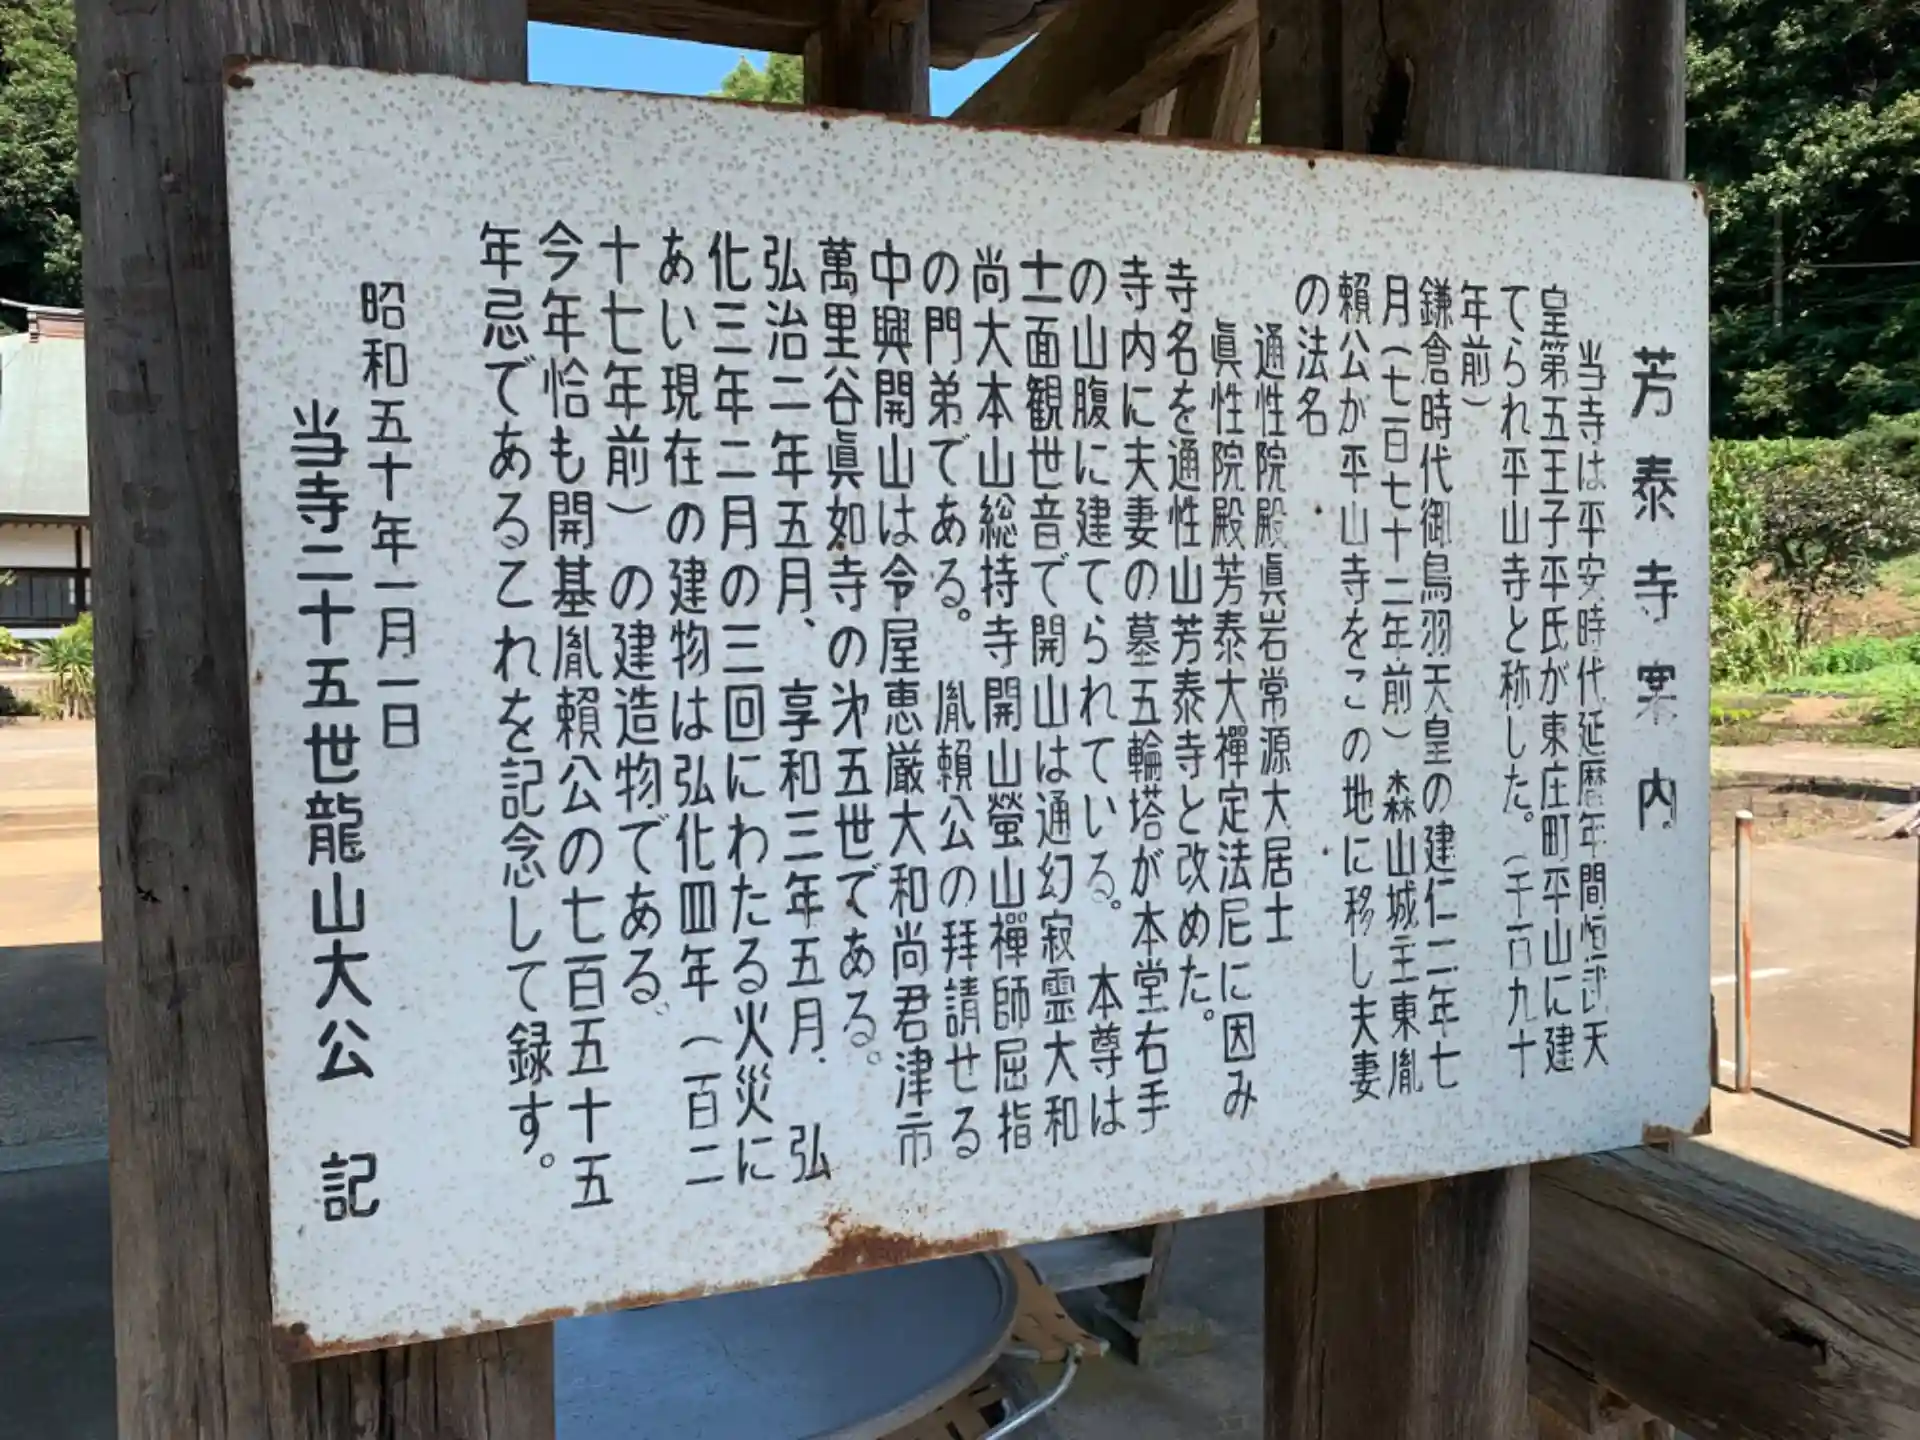 芳泰寺案内
当寺は平安時代延暦年間恒武天
皇第五王子平氏が東庄町平山に建
てられ平山寺と称した。(千百九十
年前)
鎌倉時代御鳥羽天皇の建仁二年七
月(七百七十二年前)森山城主東胤
賴公が平山寺をこの地に移し夫妻
の法名
通性院殿眞岩常源大居士
眞性院殿芳泰大禪定法尼に因み
寺名を通性山芳泰寺と改めた。
寺内に夫妻の墓五輪塔が本堂右手
の山腹に建てられている。 本尊は
十一面観世音で開山は通幻寂霊大和
尚大本山総持寺開山螢山禪師屈指
の門弟である。 胤賴公の拜請せる
中興開山は令屋恵厳大和尚君津市
萬里谷眞如寺の㐧五世である。
弘治二年五月、享和三年五月. 弘
化三年二月の三回にわたる火災に
あい現在の建物は弘化四年(百二
十七年前)の建造物である。
今年恰も開基胤賴公の七百五十五
年忌であるこれを記念して録す。
昭和五十年一月一日
当寺二十五世龍山大公 記